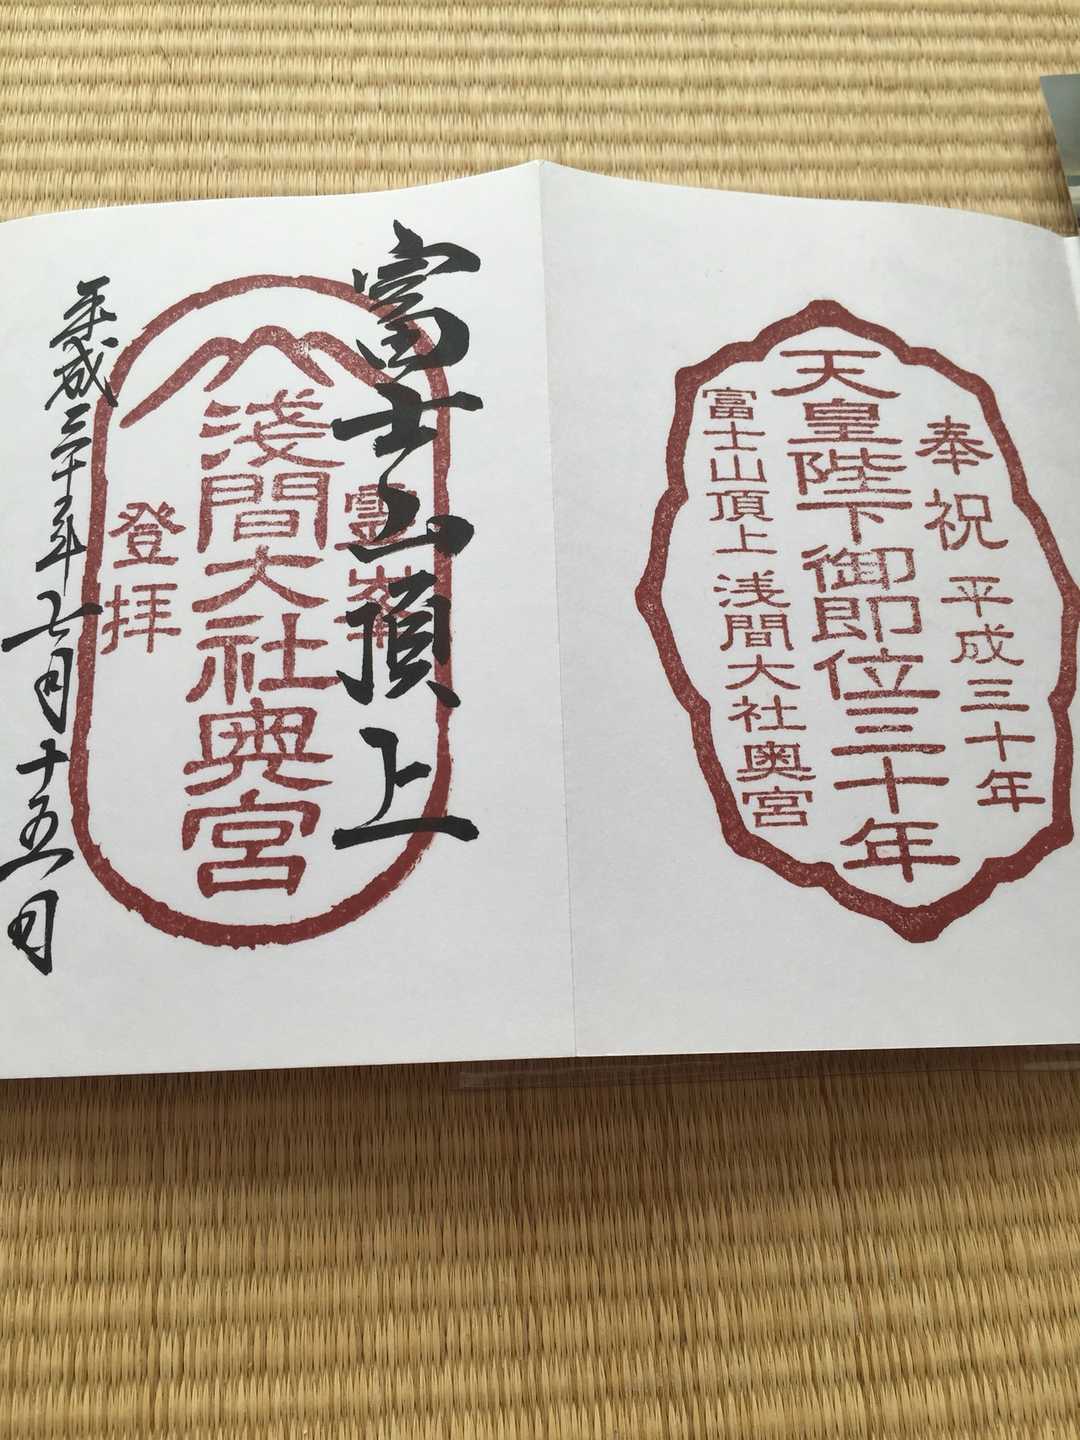 奉祝 平成三十年
天皇陛下御即位三十年
富士山頂上 浅間大社奥宮
富士山頂上
淺間大社奥宮
登拝
平成三十年七月十五日